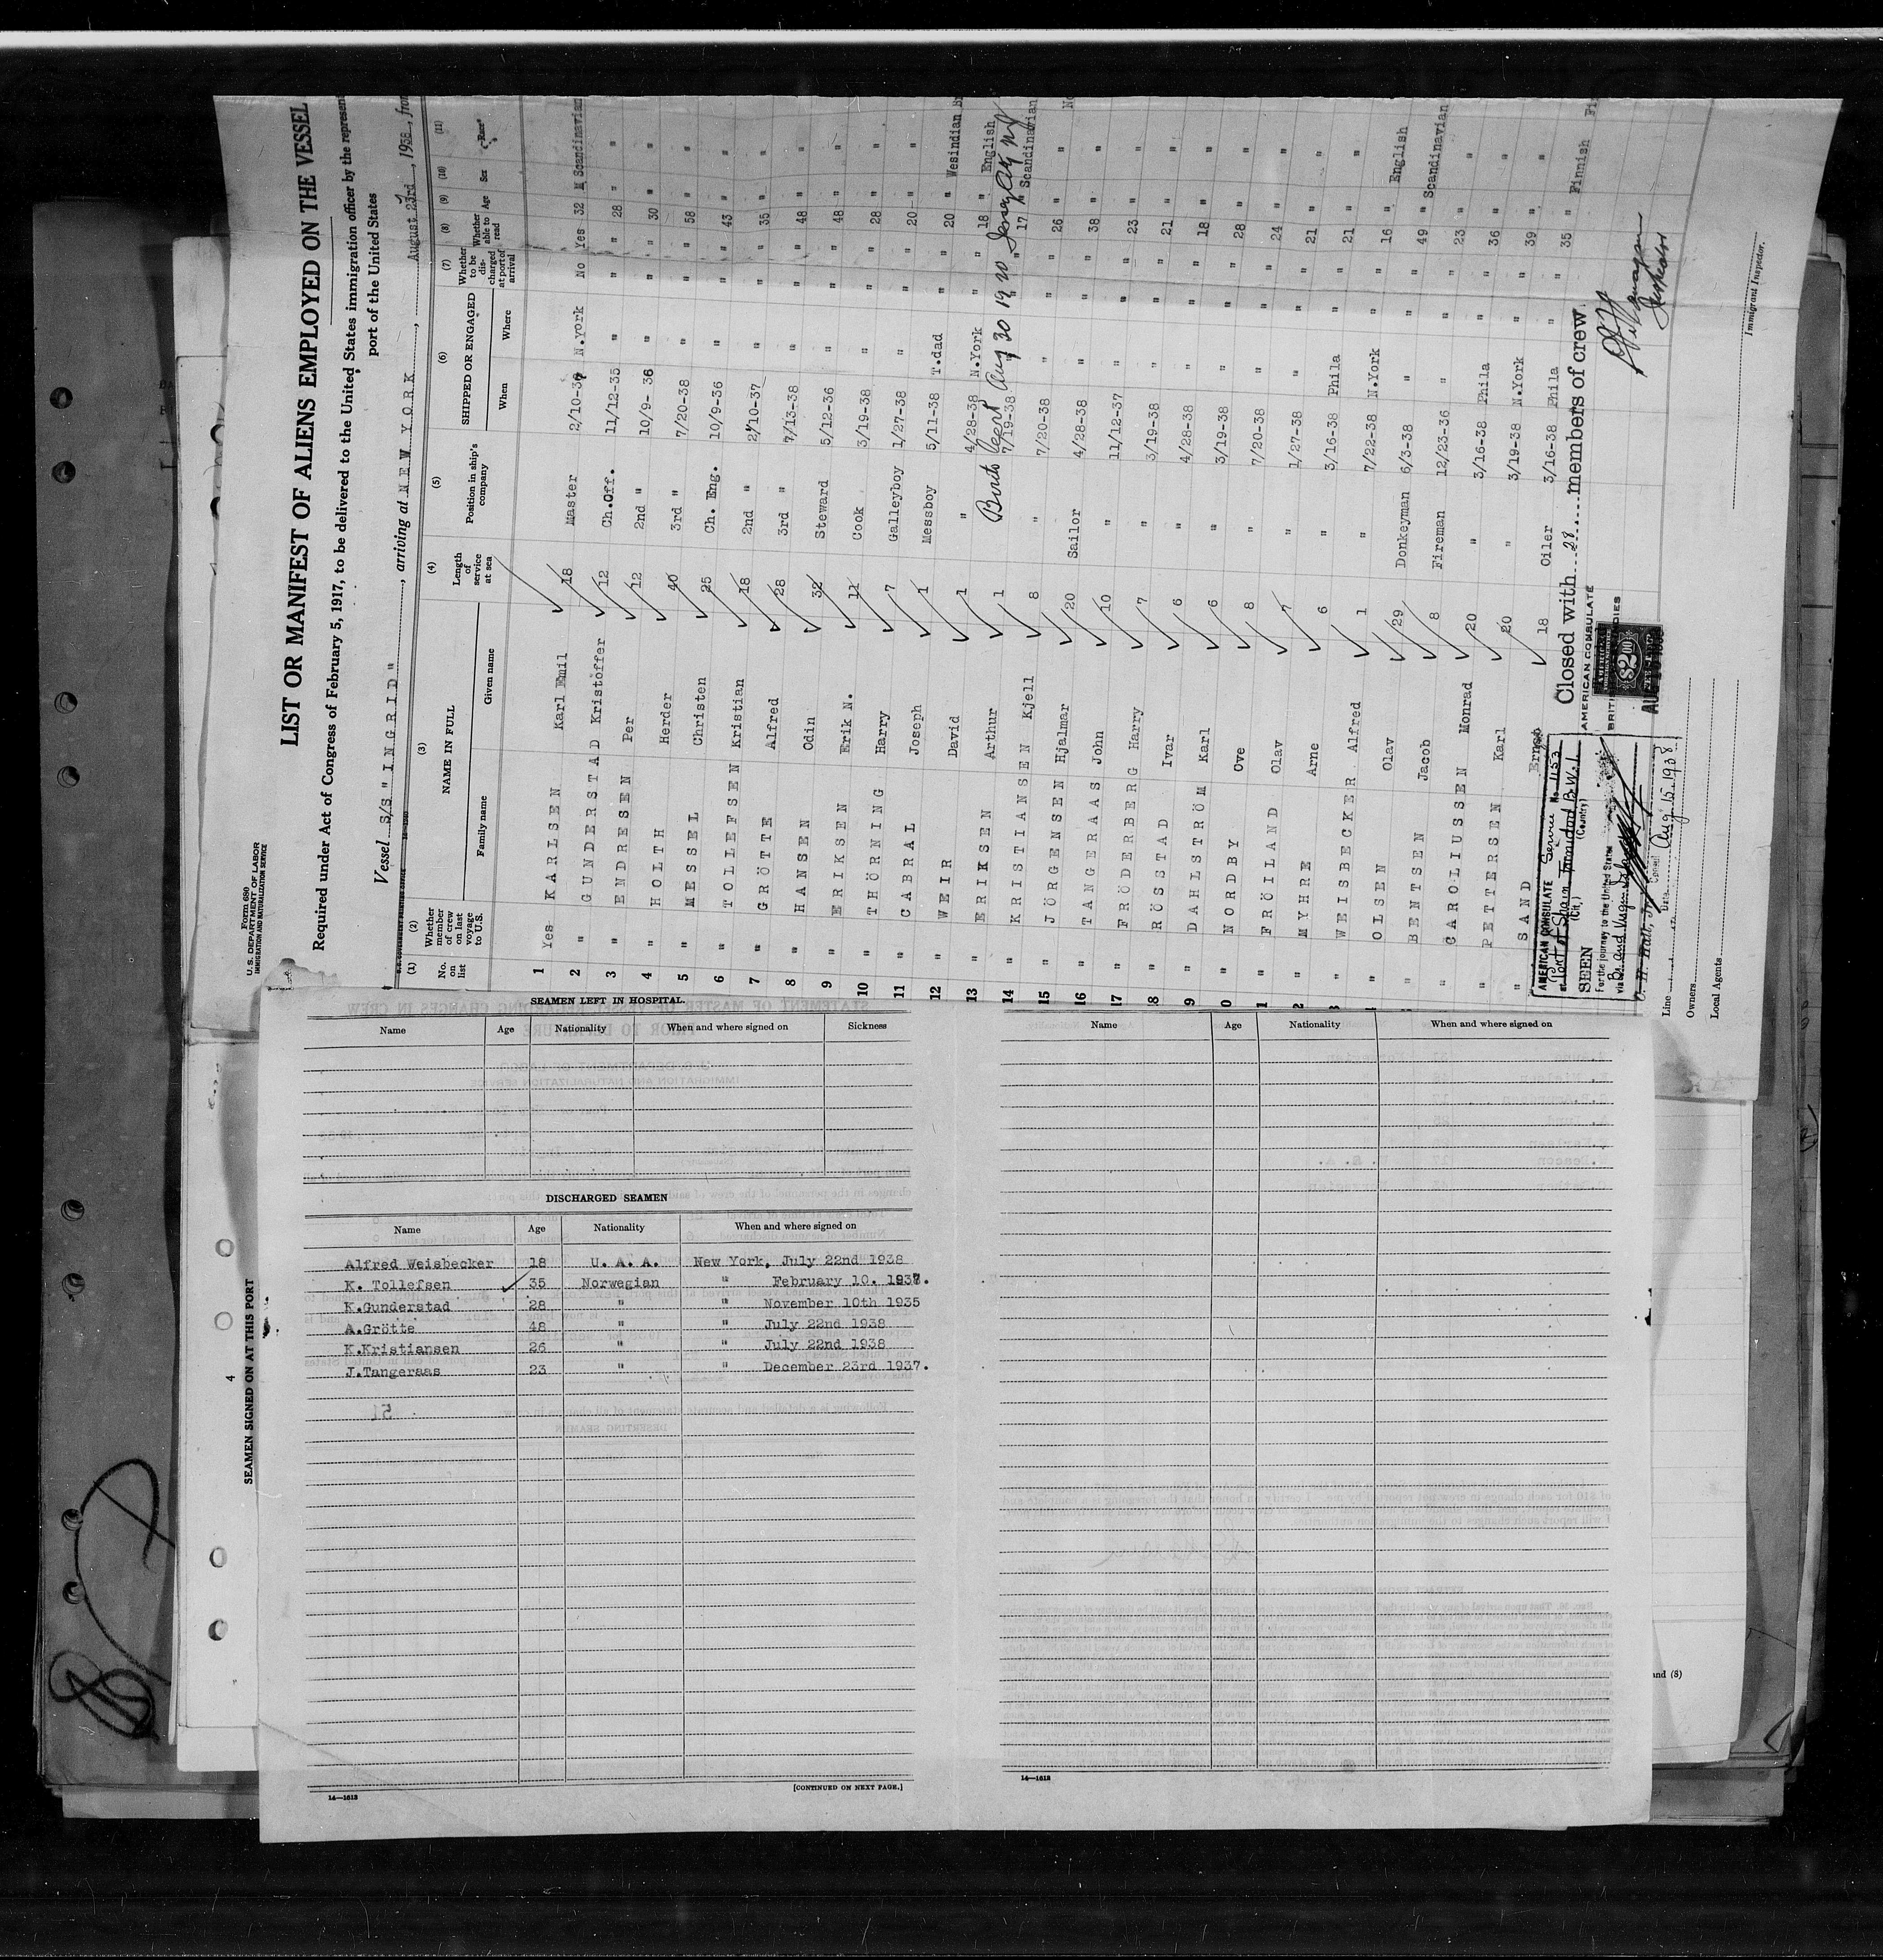 Form 680
U. S. DEPARTMENT OF LABOR
IMMIGRATION AND NATURALIZATION SERVICE
LIST OR MANIFEST OF ALIENS EMPLOYED ON THE VESSEL
Required under Act of Congress of February 5, 1917, to be delivered to the United States immigration officer by the represen
port of the United States
Vessel S/S "INGRID", arriving at NEW YORK, August 23rd, 1938, from
(1) (2) (3) (4) (5) (6) (7) (8) (9) (10) (11)
No. on list Whether member of crew on last voyage to U.S. NAME IN FULL Length of service at sea Position in ship's company SHIPPED OR ENGAGED Whether to be discharged at port of arrival Whether able to read Age Sex Race*
Family name Given name When Where
1 Yes KARLSEN Karl Emil 18 Master 2/10-36 N.York No Yes 32 M Scandinavian
2 " GUNDERSTAD Kristoffer 12 Ch.Off. 11/12-35 " " " 28 " "
3 " ENDRESEN Per 12 2nd " 10/9-36 " " " 30 " "
4 " HOLTH Herder 40 3rd " 7/20-38 " " " 58 " "
5 " MESSEL Christen 25 Ch. Eng. 10/9-36 " " " 43 " "
6 " TOLLEFSEN Kristian 18 2nd " 2/10-37 " " " 35 " "
7 " GRÖTTE Alfred 28 3rd " 7/13-38 " " " 48 " "
8 " HANSEN Odin 32 Steward 5/12-36 " " " 48 " "
9 " ERIKSEN Erik N. 11 Cook 3/19-38 " " " 28 " "
10 " THÖRNING Harry 7 Galleyboy 1/27-38 " " " 20 " "
11 " CABRAL Joseph 1 Messboy 5/11-38 T.dad " " 20 " Wesindian
12 " WEIR David 1 " 4/28-38 N.York " " 18 " English
13 " ERIKSEN Arthur 1 " 7/19-38 " " " 17 " Scandinavian
14 " KRISTIANSEN Kjell 8 " 7/20-38 " " " 26 " "
15 " JÖRGENSEN Hjalmar 20 Sailor 4/28-38 " " " 38 " "
16 " TANGERAAS John 10 " 11/12-37 " " " 23 " "
17 " FRÖDERBERG Harry 7 " 3/19-38 " " " 21 " "
18 " RÖSSTAD Ivar 6 " 4/28-38 " " " 18 " "
9 " DAHLSTRÖM Karl 6 " 3/19-38 " " " 28 " "
0 " NORDBY Ove 8 " 7/20-38 " " " 24 " "
1 " FRÖILAND Olav 7 " 1/27-38 " " " 21 " "
2 " MYHRE Arne 6 " 3/16-38 Phila " " 21 " "
" WEISBECKER Alfred 1 " 7/22-38 N.York " " 16 " English
" OLSEN Olav 29 Donkeyman 6/3-38 " " " 49 " Scandinavian
" BENTSEN Jacob 8 Fireman 12/23-36 " " " 23 " "
" CAROLIUSSEN Monrad 20 " 3/16-38 Phila " " 36 " "
" PETTERSEN Karl 20 " 3/19-38 N.York " " 39 " "
" SAND 18 Oiler 3/16-38 Phila " " 35 " Finnish Fi
Closed with 28 members of crew
AMERICAN CONSULATE
AMERICAN CONSULATE Service No. 1153
at Port of Spain Trinidad B.W.I.
(City) (Country)
SEEN
For the journey to the United States
$2.00
Date Aug 15, 1938
Line
Owners
Local Agents
Immigrant Inspector.
SEAMEN LEFT IN HOSPITAL.
Name Age Nationality When and where signed on Sickness
DISCHARGED SEAMEN
Name Age Nationality When and where signed on
Alfred Weisbecker 18 U. A. A. New York, July 22nd 1938
K. Tollefsen 35 Norwegian " February 10. 1937.
K.Gunderstad 28 " " November 10th 1935
A.Grötte 48 " " July 22nd 1938
K.Kristiansen 26 " " July 22nd 1938
J.Tangeraas 23 " " December 23rd 1937.
[CONTINUED ON NEXT PAGE.]
14—1613
4
SEAMEN SIGNED ON AT THIS PORT
Name Age Nationality When and where signed on
14—1613
and (8)